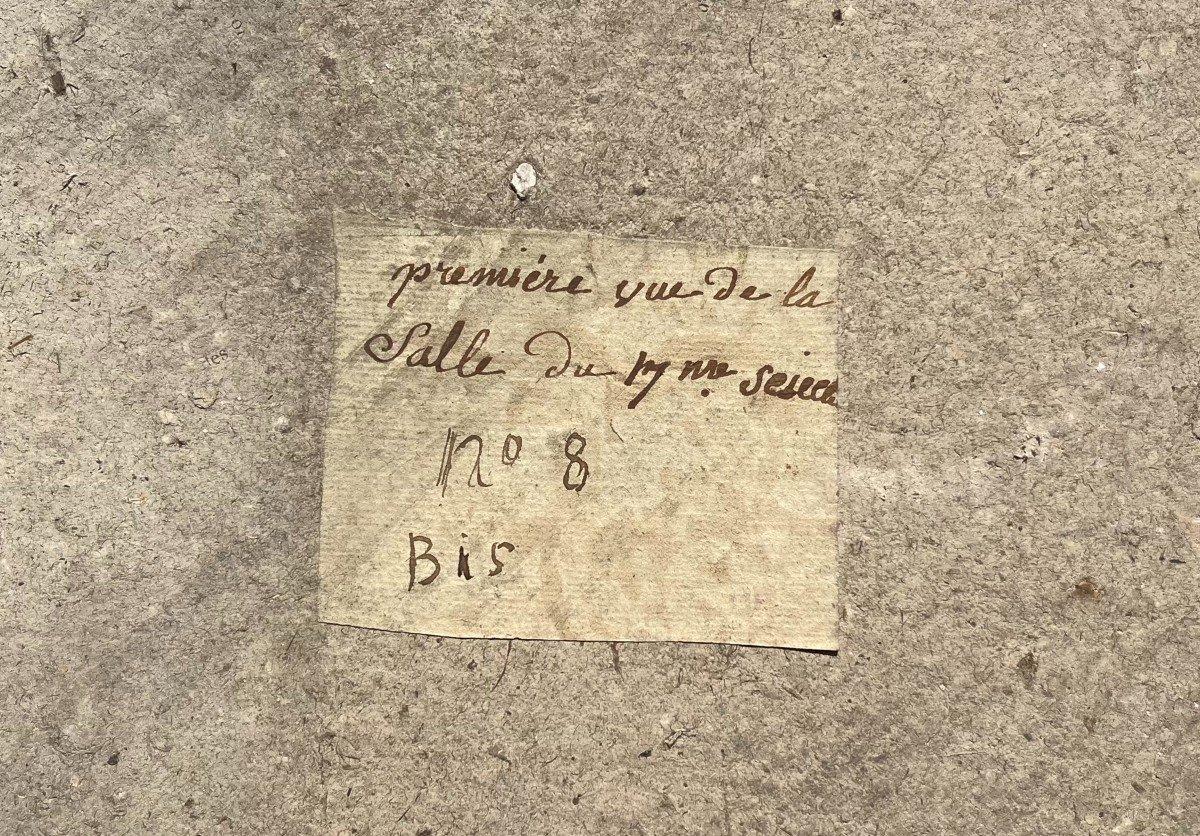 première vue de la
Salle du 17 me seiecle
nº 8
Bis